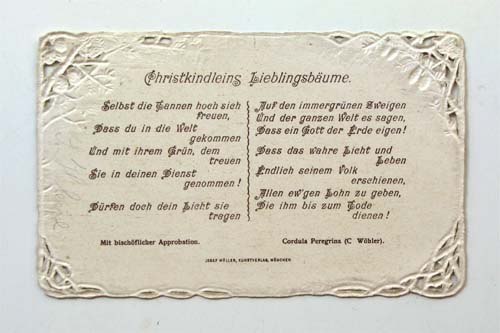 Christkindleins Lieblingsbäume.
Selbst die Tannen hoch sich
freuen,
Dass du in die Welt
gekommen
Und mit ihrem Grün, dem
treuen
Sie in deinen Dienst
genommen!
Dürfen doch dein Licht sie
tragen
Auf den immergrünen Zweigen
Und der ganzen Welt es sagen,
Dass ein Gott der Erde eigen!
Dass das wahre Licht und
Leben
Endlich seinem Volk
erschienen,
Allen ew'gen Lohn zu geben,
Die ihm bis zum Tode
dienen!
Mit bischöflicher Approbation.
Cordula Peregrina (C Wöhler).
JOSEF MÜLLER, KUNSTVERLAG, MÜNCHEN